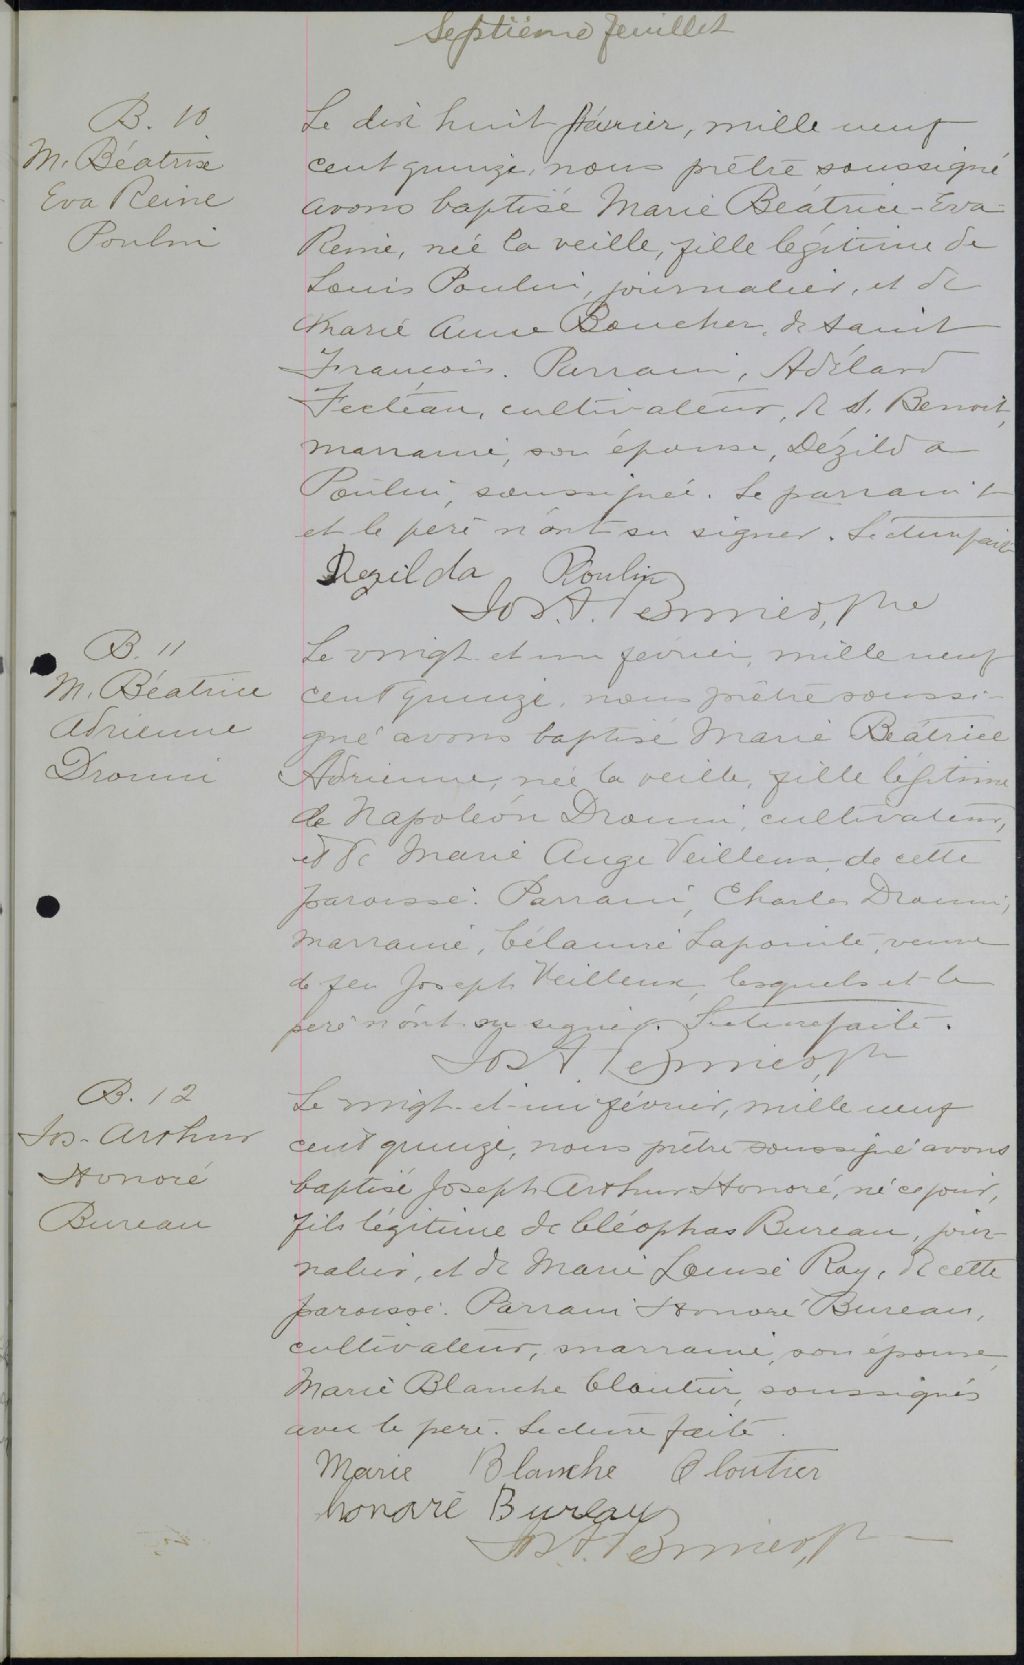 Septième feuillet
B. 10
M. Béatrice
Eva Reine
Poulin
Le dix huit février, mille neuf
cent quinze, nous prêtre soussigné
avons baptisé Marie Béatrice-Eva-
Reine, née la veille, fille légitime de
Louis Poulin, journalier, et de
Marie Anne Boucher, de Saint
François. Parrain, Adélard
Fecteau, cultivateur, de S. Benoit,
marraine, son épouse, Dézilda
Poulin, soussignée. Le parrain
et le père n'ont su signer. Lecture faite
Dezilda Poulin
Jos. A. Bernier, ptre
B. 11
M. Béatrice
Adrienne
Drouin
Le vingt et un février, mille neuf
cent quinze, nous prêtre soussi-
gné avons baptisé Marie Béatrice
Adrienne, née la veille, fille légitime
de Napoléon Drouin, cultivateur,
et de Marie Ange Veilleux, de cette
paroisse. Parrain, Charles Drouin,
marraine, Célanire Lapointe, veuve
de feu Joseph Veilleux, lesquels et le
père n'ont su signer. Lecture faite.
Jos A. Bernier, ptr
B. 12
Jos-Arthur
Honoré
Bureau
Le vingt-et-un février, mille neuf
cent quinze, nous prêtre soussigné avons
baptisé Joseph Arthur Honoré, né ce jour,
fils légitime de Cléophas Bureau, jour-
nalier, et de Marie Louise Roy, de cette
paroisse. Parrain Honoré Bureau,
cultivateur, marraine, son épouse,
Marie Blanche Cloutier, soussignés
avec le père. Lecture faite.
Marie Blanche Cloutier
honoré Bureau
Jos A. Bernier, ptr